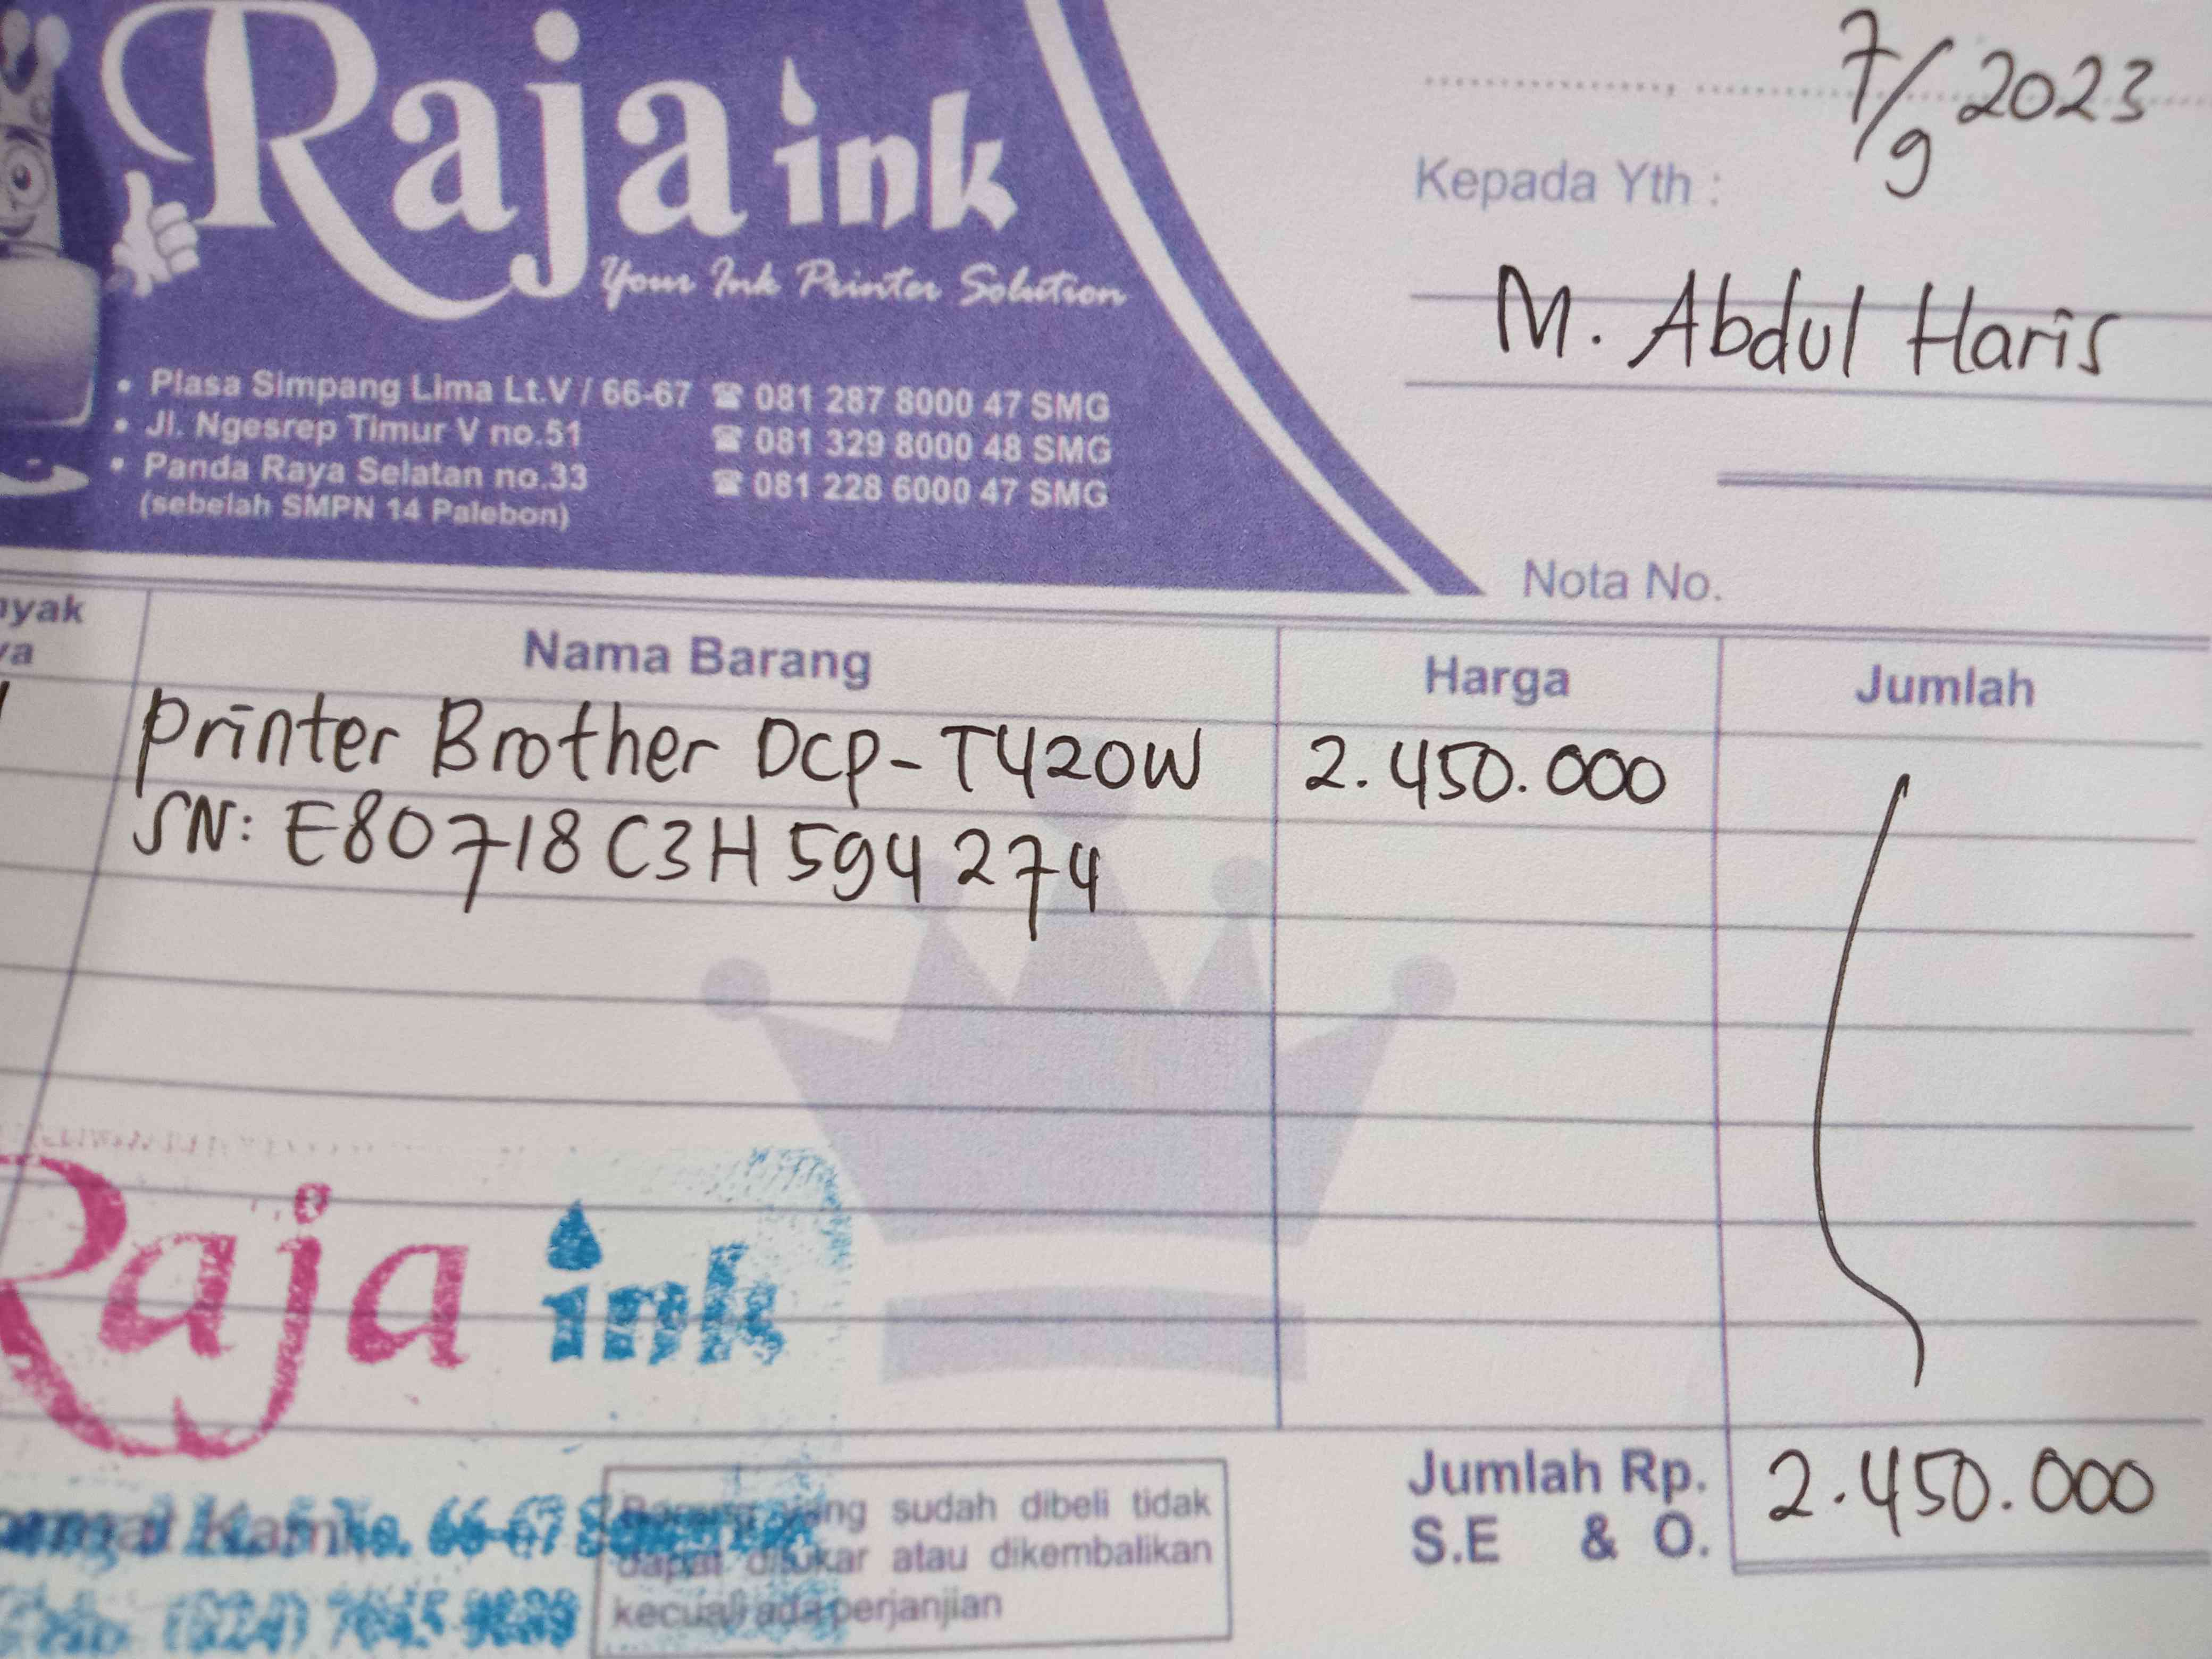 Raja ink
Your Ink Printer Solution
• Plasa Simpang Lima Lt.V / 66-67 ☎ 081 287 8000 47 SMG
• Jl. Ngesrep Timur V no.51 ☎ 081 329 8000 48 SMG
• Panda Raya Selatan no.33 ☎ 081 228 6000 47 SMG
(sebelah SMPN 14 Palebon)
7/9 2023
Kepada Yth :
M. Abdul Haris
Nota No.
nyak
ya
Nama Barang Harga Jumlah
1 Printer Brother DCP-T420W 2.450.000
SN: E80718C3H594274
Raja ink
No. 66-67
(024)
Barang yang sudah dibeli tidak
dapat ditukar atau dikembalikan
kecuali ada perjanjian
Jumlah Rp. 2.450.000
S.E & O.